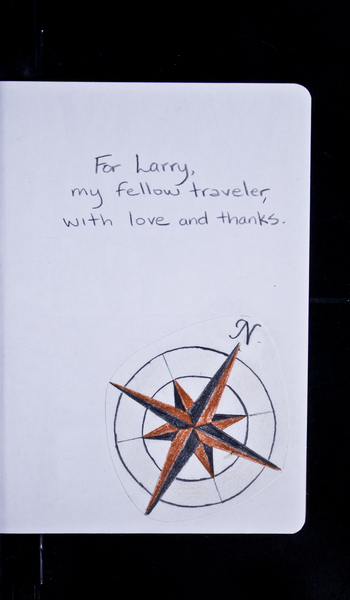 For Larry,
my fellow traveler,
with love and thanks.
N.